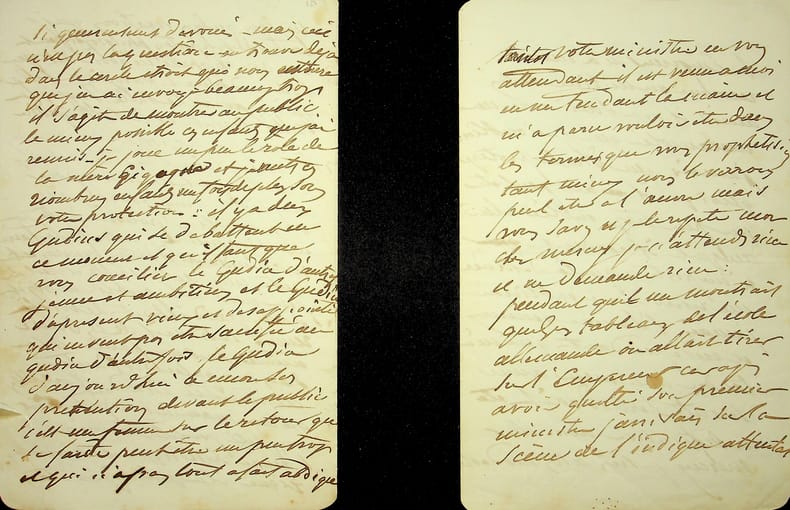 si généreusement dévoué - mais ceci
n'est pas la question - on trouve déjà
dans le cercle étroit qui nous entoure
que j'en ai envoyé beaucoup trop
il s'agit de montrer au public
le mieux possible ces enfants que j'ai
réunis - je joue un peu le rôle de
la mère gigogne et je mets mes
nombreux enfants
votre protection : il y a deux
Gudins qui se débattent en
ce moment et qu'il faut que
vous conciliez le Gudin d'autrefois
jeune et ambitieux et le Gudin
d'àprésent vieux et désappointé
qui ne veut pas être sacrifié au
gudin d'autrefois, le Gudin
d'aujourd'hui a encore des
prétentions devant le public
c'est une femme sur le retour qui
se farde peut être un peu trop
et qui n'a pas tout à fait abdiqué
tantôt votre ministre en vous
attendant il est venu a moi
en me tendant la main et
m'a paru vouloir être dans
les termes que vous prophétisiez
tant mieux nous le verrons
peut être a l'œuvre mais
vous savez je le répète mon
cher je n'attends rien
et ne demande rien :
pendant qu'il me montrait
quelques tableaux de l'école
allemande on allait tirer
sur l'Empereur car après
avoir quitté son premier
ministre j'arrivais sur la
scène de l'indigne attentat